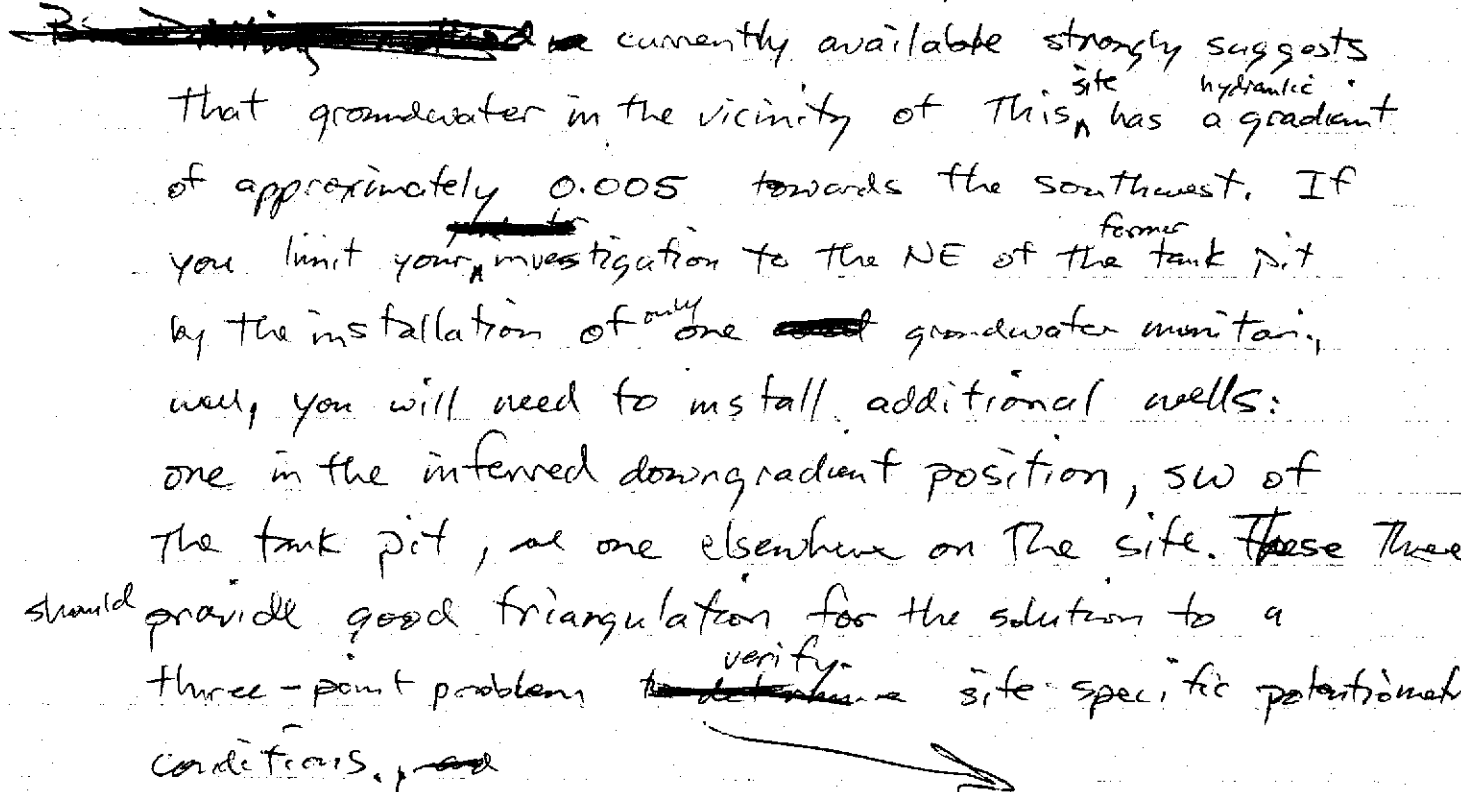 currently available strongly suggests
that groundwater in the vicinity of This site has a hydraulic gradient
of approximately 0.005 towards the southwest. If
you limit your investigation to the NE of the former tank pit
by the installation of only one groundwater monitoring
well, you will need to install additional wells:
one in the inferred downgradient position, SW of
The tank pit, and one elsewhere on The site. These Three
should provide good triangulation for the solution to a
three-point problem verify site specific potentiometr
conditions.